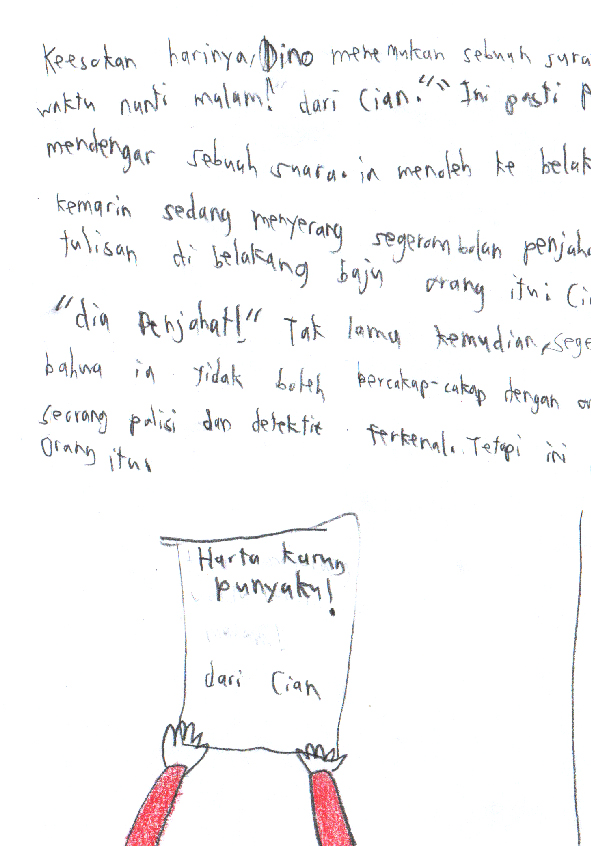 Keesokan harinya, Dino menemukan sebuah sura
waktu nunti malam!" dari Cian."" Ini pasti p
mendengar sebuah suara. ia menoleh ke belak
kemarin sedang menyerang segerombolan penjaha
tulisan di belakang baju orang itu. Ci
"dia Penjahat!" Tak lama kemudian, sege
bahwa ia tidak boleh bercakap-cakap dengan o
seorang polisi dan detektif terkenal. Tetapi ini
orang itu.
Harta karun
punyaku!
dari Cian